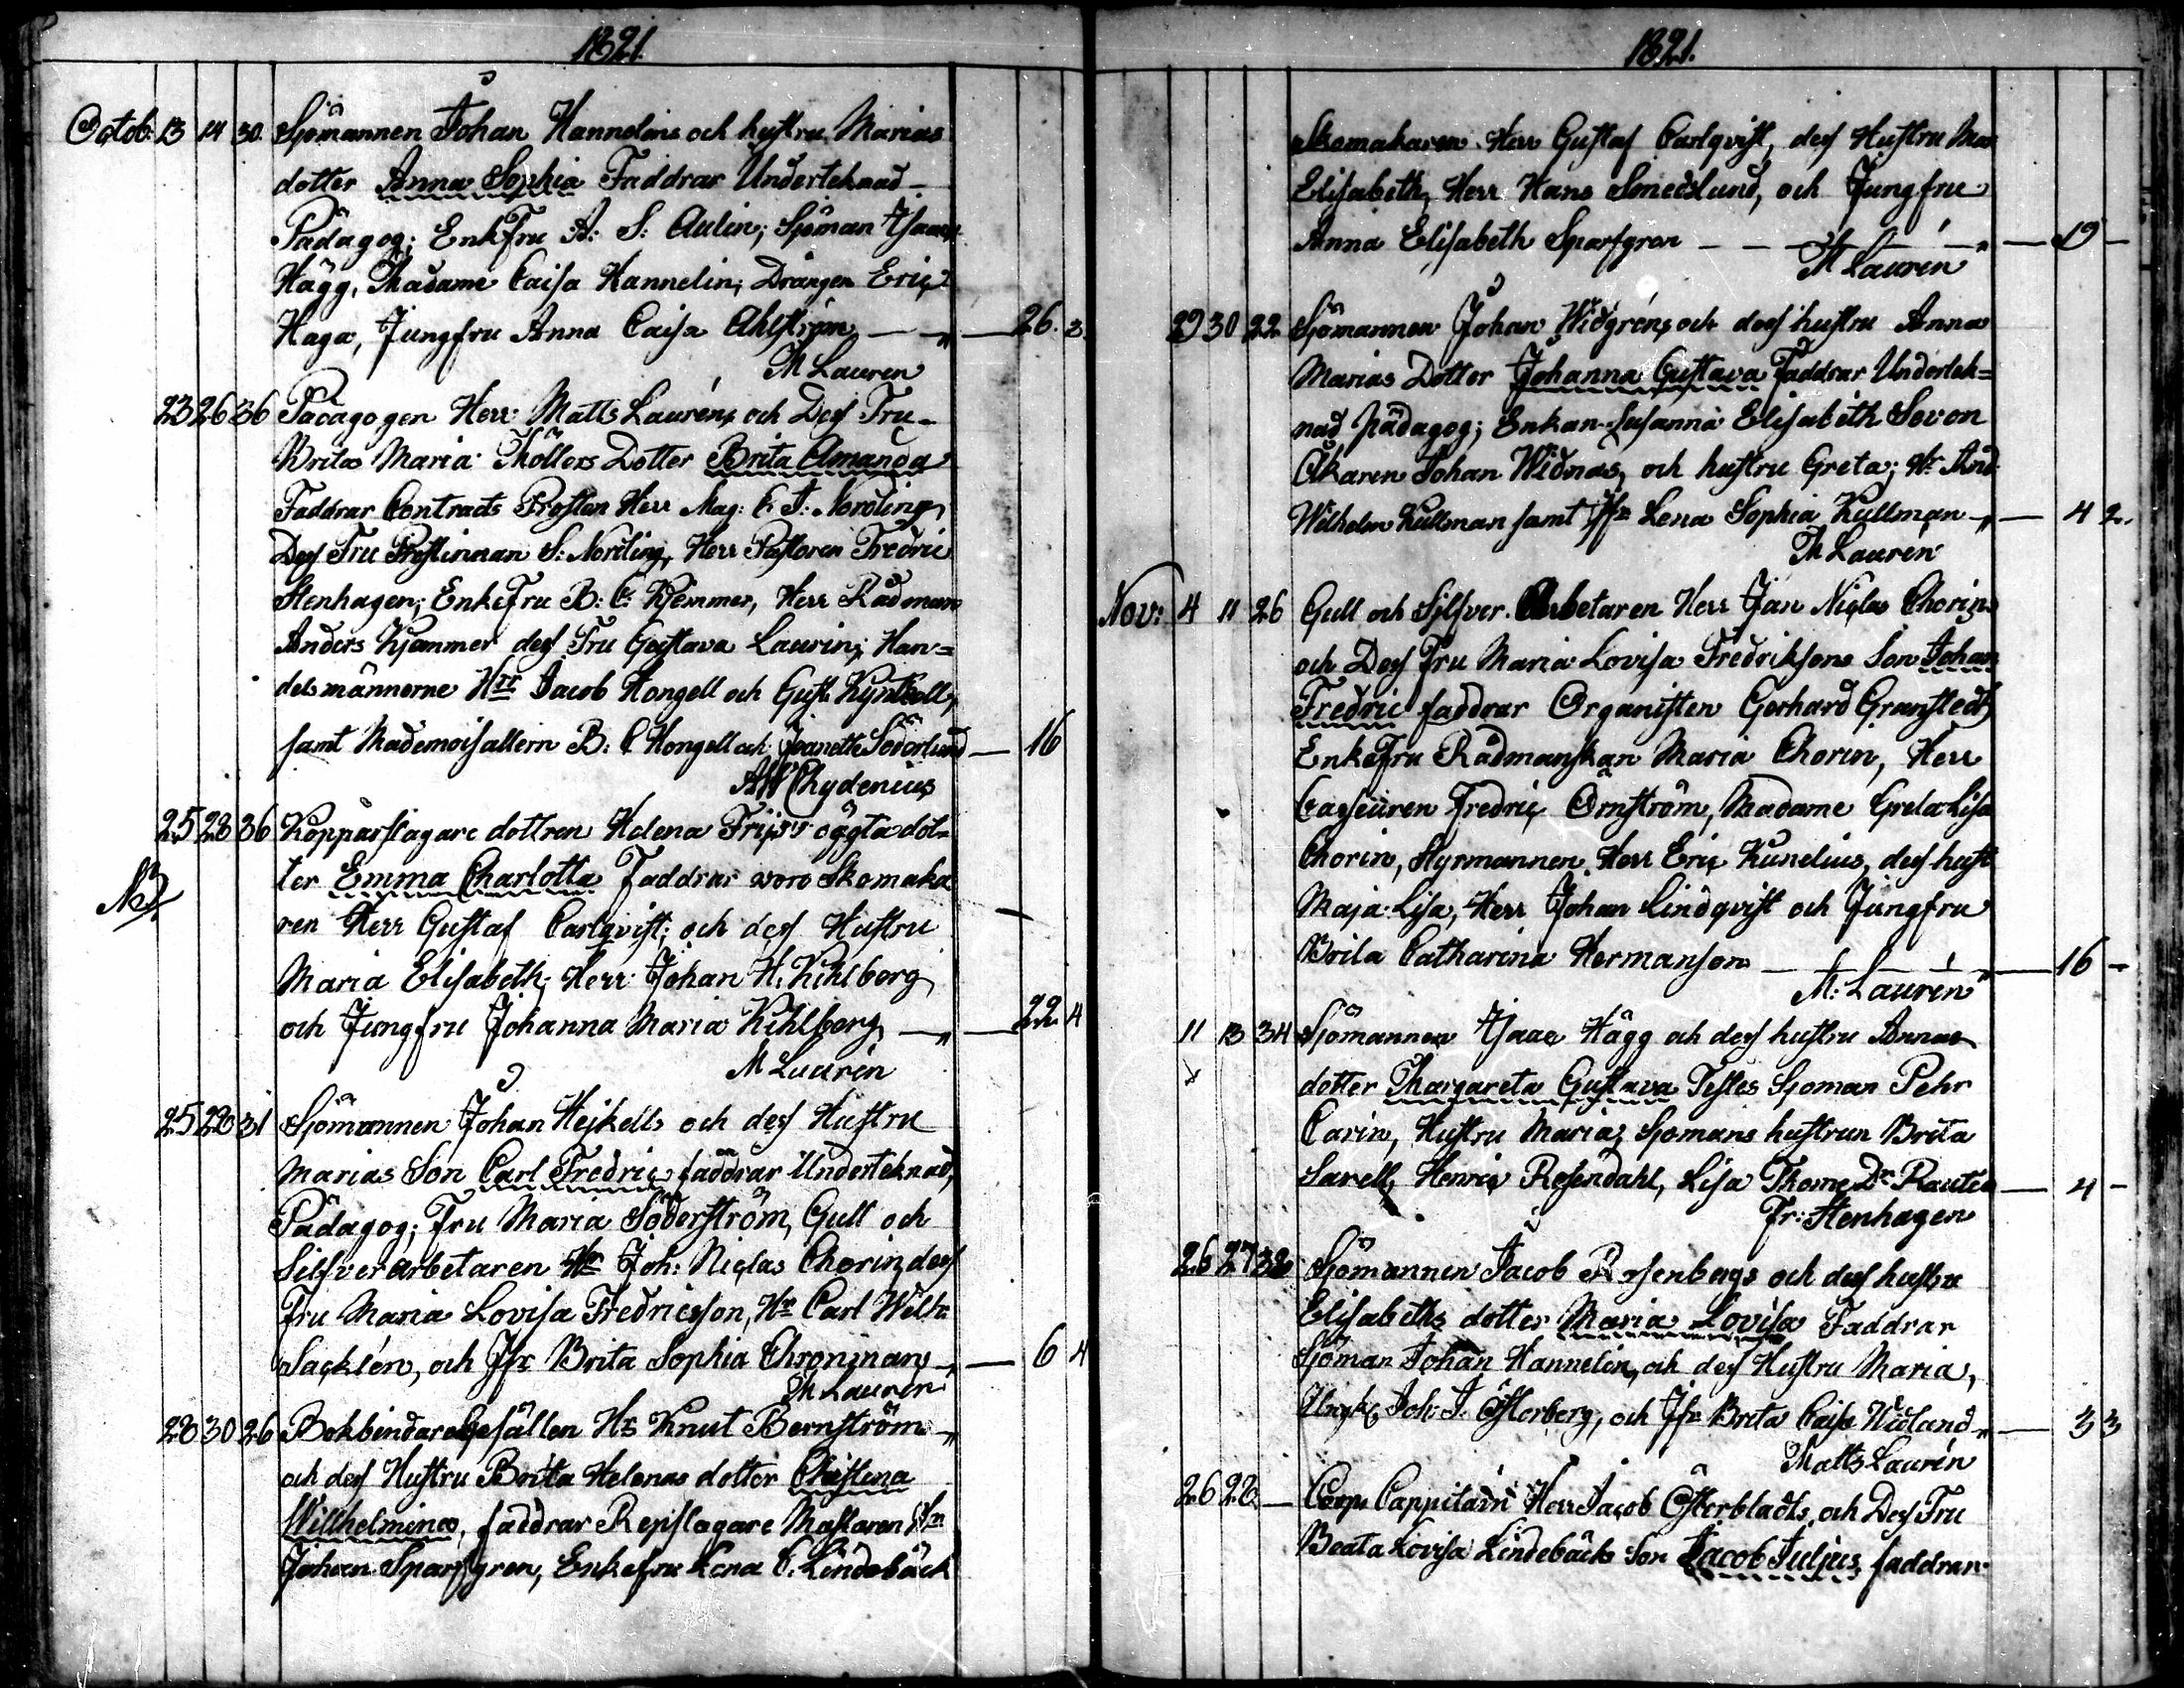 1821.
Octob: 13 14 30. Sjömannen Johan Hannelins och hustru Marias
dotter Anna Sophia Faddrar Underteknad
Pädagog; EnkFru A: S: Aulin; Sjöman Isaac
Hägg, Madame Caisa Hannelin; Drängen Eric
Haga, Jungfru Anna Caisa Ahlström — „ — 26. 3.
M Lauren
23 26 36 Pädagogen Herr Matts Lauréns och Dess Fru
Britas Maria Möllers Dotter Brita Amanda
Faddrar Contracts Prosten Herr Mag: C J: Nordling
Dess Fru Prostinnan S: Nordling, Herr Pastoren Fredric
Stenhagen; EnkeFru B: C: Kjemmer, Herr Rådman
Anders Kjemmer dess Fru Gustava Laurin; Han=
delsmännerne Hrr Jacob Hongell och Gust. Kyntzell,
samt Mademoisallern B: C Hongell och Jeanette Söderlund — 16
AW Chydenius
25 28 36 Kopparslagare dottren Helena Frijs's oägta dot-
ter Emma Charlotta Faddrar woro Skomaka
NB
ren Herr Gustaf Carlqvist; och dess Hustru
Maria Elisabeth; Herr Johan H. Kihlberg
och Jungfru Johanna Maria Kihlberg — „ — 22. 4
M Laurén
25 28 31 Sjömannen Johan Hejkells och dess Hustru
Marias Son Carl Fredric faddrar Underteknad,
Pädagog; Fru Maria Söderström, Gull och
Silfverarbetaren Hr Joh: Niclas Chorin, dess
Fru Maria Lovisa Fredricsson, Hr Carl Wilh:
Sacklén, och Jfr Brita Sophia Chroninan — „ — 6 4
M Laurén
28 30 26 Bokbindare Gesällen Hr Knut Bernström „
och dess Hustru Brita Helenas dotter Christina
Willhelmina, faddrar Repslagare Mästaren Hr
Johan Sparfgren, Enkefru Lena C. Lindebäck
1821.
Skomakaren Herr Gustaf Carlqvist, dess Hustru Mar
Elisabeth, Herr Hans Smedslund, och Jungfru
Anna Elisabeth Sparfgren — — — — „ — 19 —
M Laurén
29 30 22 Sjömannen Johan Widgréns och dess hustru Anna
Marias Dotter Johanna Gustava Faddrar Undertek=
nad pädagog; Enkan Susanna Elisabeth Sevon
Åkaren Johan Widnäs, och hustru Greta; Hr And
Wilhelm Kullman samt Jfr Lena Sophia Kullman „ — 4 2.
M Laurén
Nov: 4 11 26 Gull och Silfver Arbetaren Herr Jan Niclas Chorins
och Dess Fru Maria Lovisa Fredriksons Son Johan
Fredric faddrar Organisten Gerhard Granstedt,
EnkeFru Rådmanskan Maria Chorin, Herr
Casseuren Fredric Örnström, Madame Greta Lisa
Chorin, Styrmannen Herr Eric Kunelius, dess hust
Maja Lisa, Herr Johan Lindqvist och Jungfru
Brita Catharina Hermanson — — — „ — 16 —
M: Laurén
11 13 34 Sjömannen Isaac Hägg och dess hustru Annas
x dotter Margareta Gustava Testes Sjoman Pehr
Carin, Hustru Maria; Sjomans hustrun Brita
Sarell, Henric Rosendahl, Lisa Thome Dr Rautio — 4 —
Fr: Stenhagen
26 27 32 Sjömannen Jacob Rosenbergs och dess hustru
Elisabeths dotter Maria Lovisa Faddrar
Sjöman Johan Hannelin, och dess Hustru Maria,
Ungk. Joh: J. Österberg, och Jfr Brita Caisa Widland „ — 3 3
Matts Laurén
26 28 — Coop: Cappitain Herr Jacob Österbladts, och Dess Fru
Beata Lovisa Lindebäcks Son Jacob Julius, faddrar